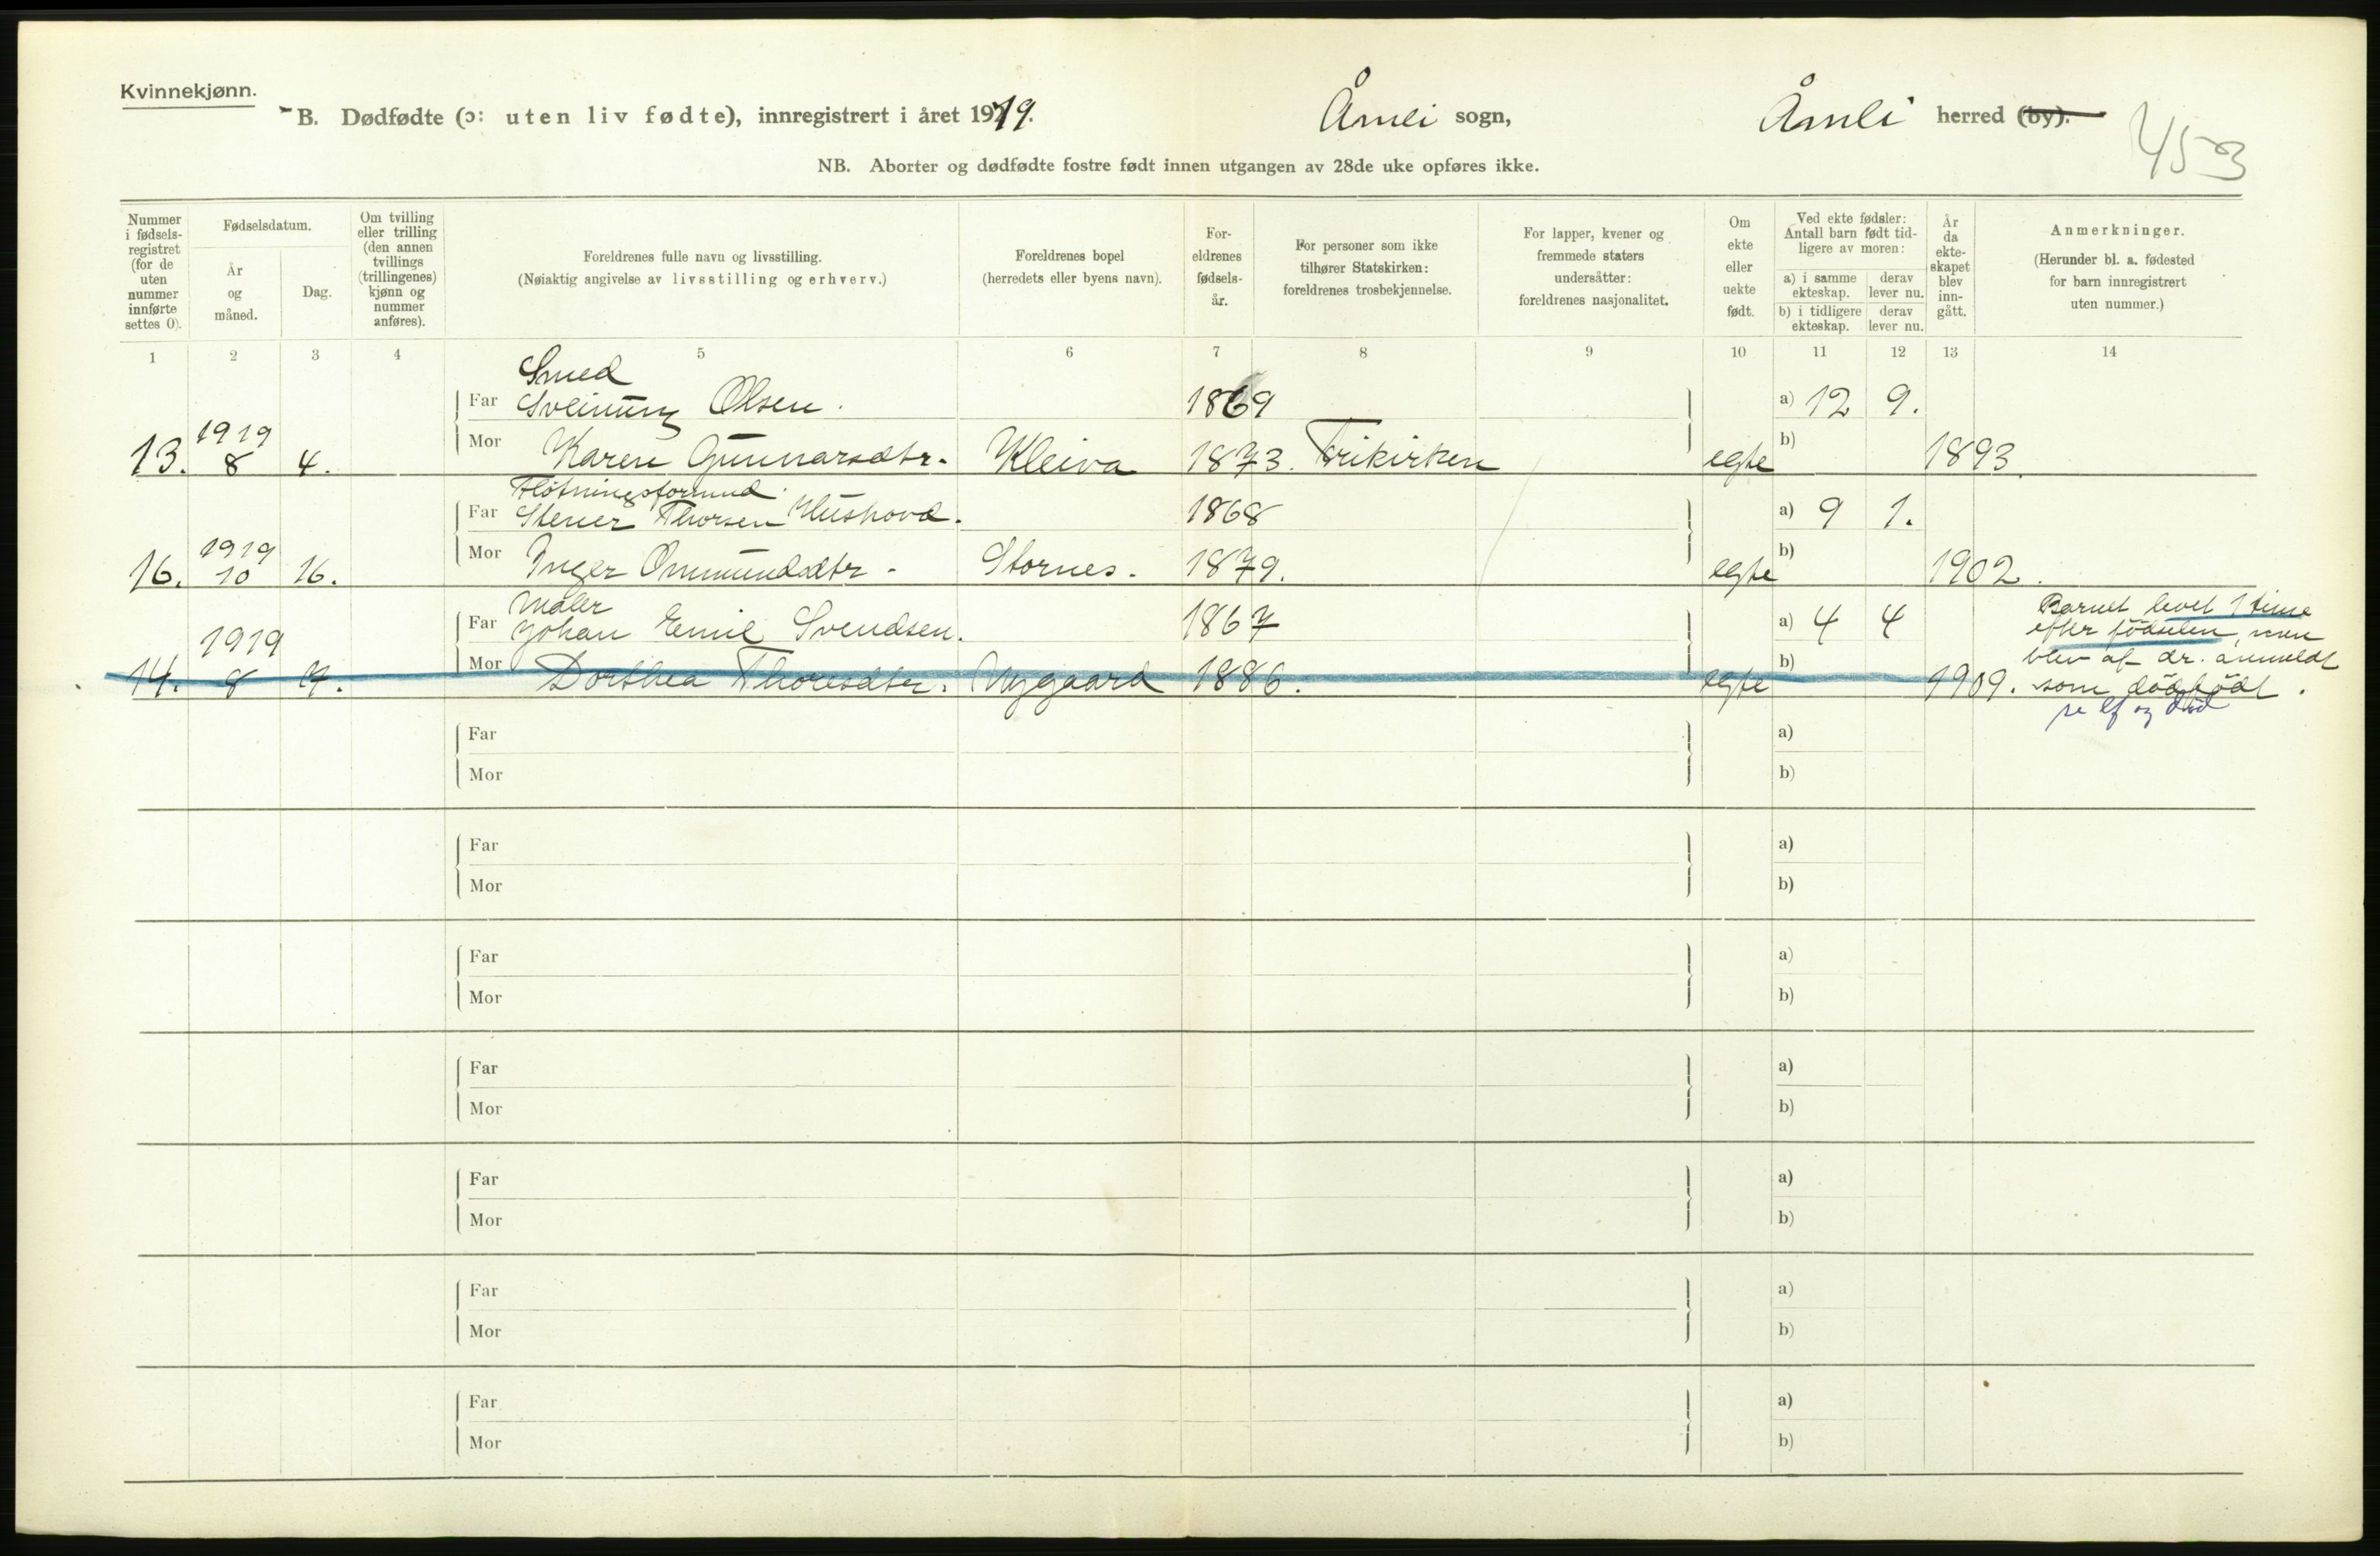 Kvinnekjønn.
B. Dødfødte (ɔ: uten liv fødte), innregistrert i året 1919. Åmli sogn, Åmli herred (by).
453
NB. Aborter og dødfødte fostre født innen utgangen av 28de uke opføres ikke.
Nummer i fødsels-registret (for de uten nummer innførte settes 0).
Fødselsdatum.
År og måned.
Dag.
Om tvilling eller trilling (den annen tvillings (trillingenes) kjønn og nummer anføres).
Foreldrenes fulle navn og livsstilling.
(Nøiaktig angivelse av livsstilling og erhverv.)
Foreldrenes bopel
(herredets eller byens navn).
For-eldrenes fødsels-år.
For personer som ikke tilhører Statskirken: foreldrenes trosbekjennelse.
For lapper, kvener og fremmede staters undersåtter: foreldrenes nasjonalitet.
Om ekte eller uekte født.
Ved ekte fødsler: Antall barn født tid-ligere av moren:
a) i samme ekteskap. derav lever nu.
b) i tidligere ekteskap. derav lever nu.
År da ekte-skapet blev inn-gått.
Anmerkninger.
(Herunder bl. a. fødested for barn innregistrert uten nummer.)
1 2 3 4 5 6 7 8 9 10 11 12 13 14
Smed
Far Sveinung Olsen. 1869 a) 12 9.
1919
13. 8 4. Mor Karen Gunnarsdtr. Kleiva 1873. Frikirken egte b) 1893.
Fløtningsformnd.
Far Stener Thorsen Hushovd. 1868 a) 9 1.
1919
16. 10 16. Mor Inger Ommundsdtr. Stornes. 1879. egte b) 1902.
Maler
Far Johan Emil Svendsen. 1867 a) 4 4
1919
14. 8 7. Mor Dorthea Thoresdter. Nygaard 1886. egte b) 1909.
Barnet levet 1 time
efter födselen, men
blev af dr. anmeldt
som dödfödt.
se lf og død
Far a)
Mor b)
Far a)
Mor b)
Far a)
Mor b)
Far a)
Mor b)
Far a)
Mor b)
Far a)
Mor b)
Far a)
Mor b)